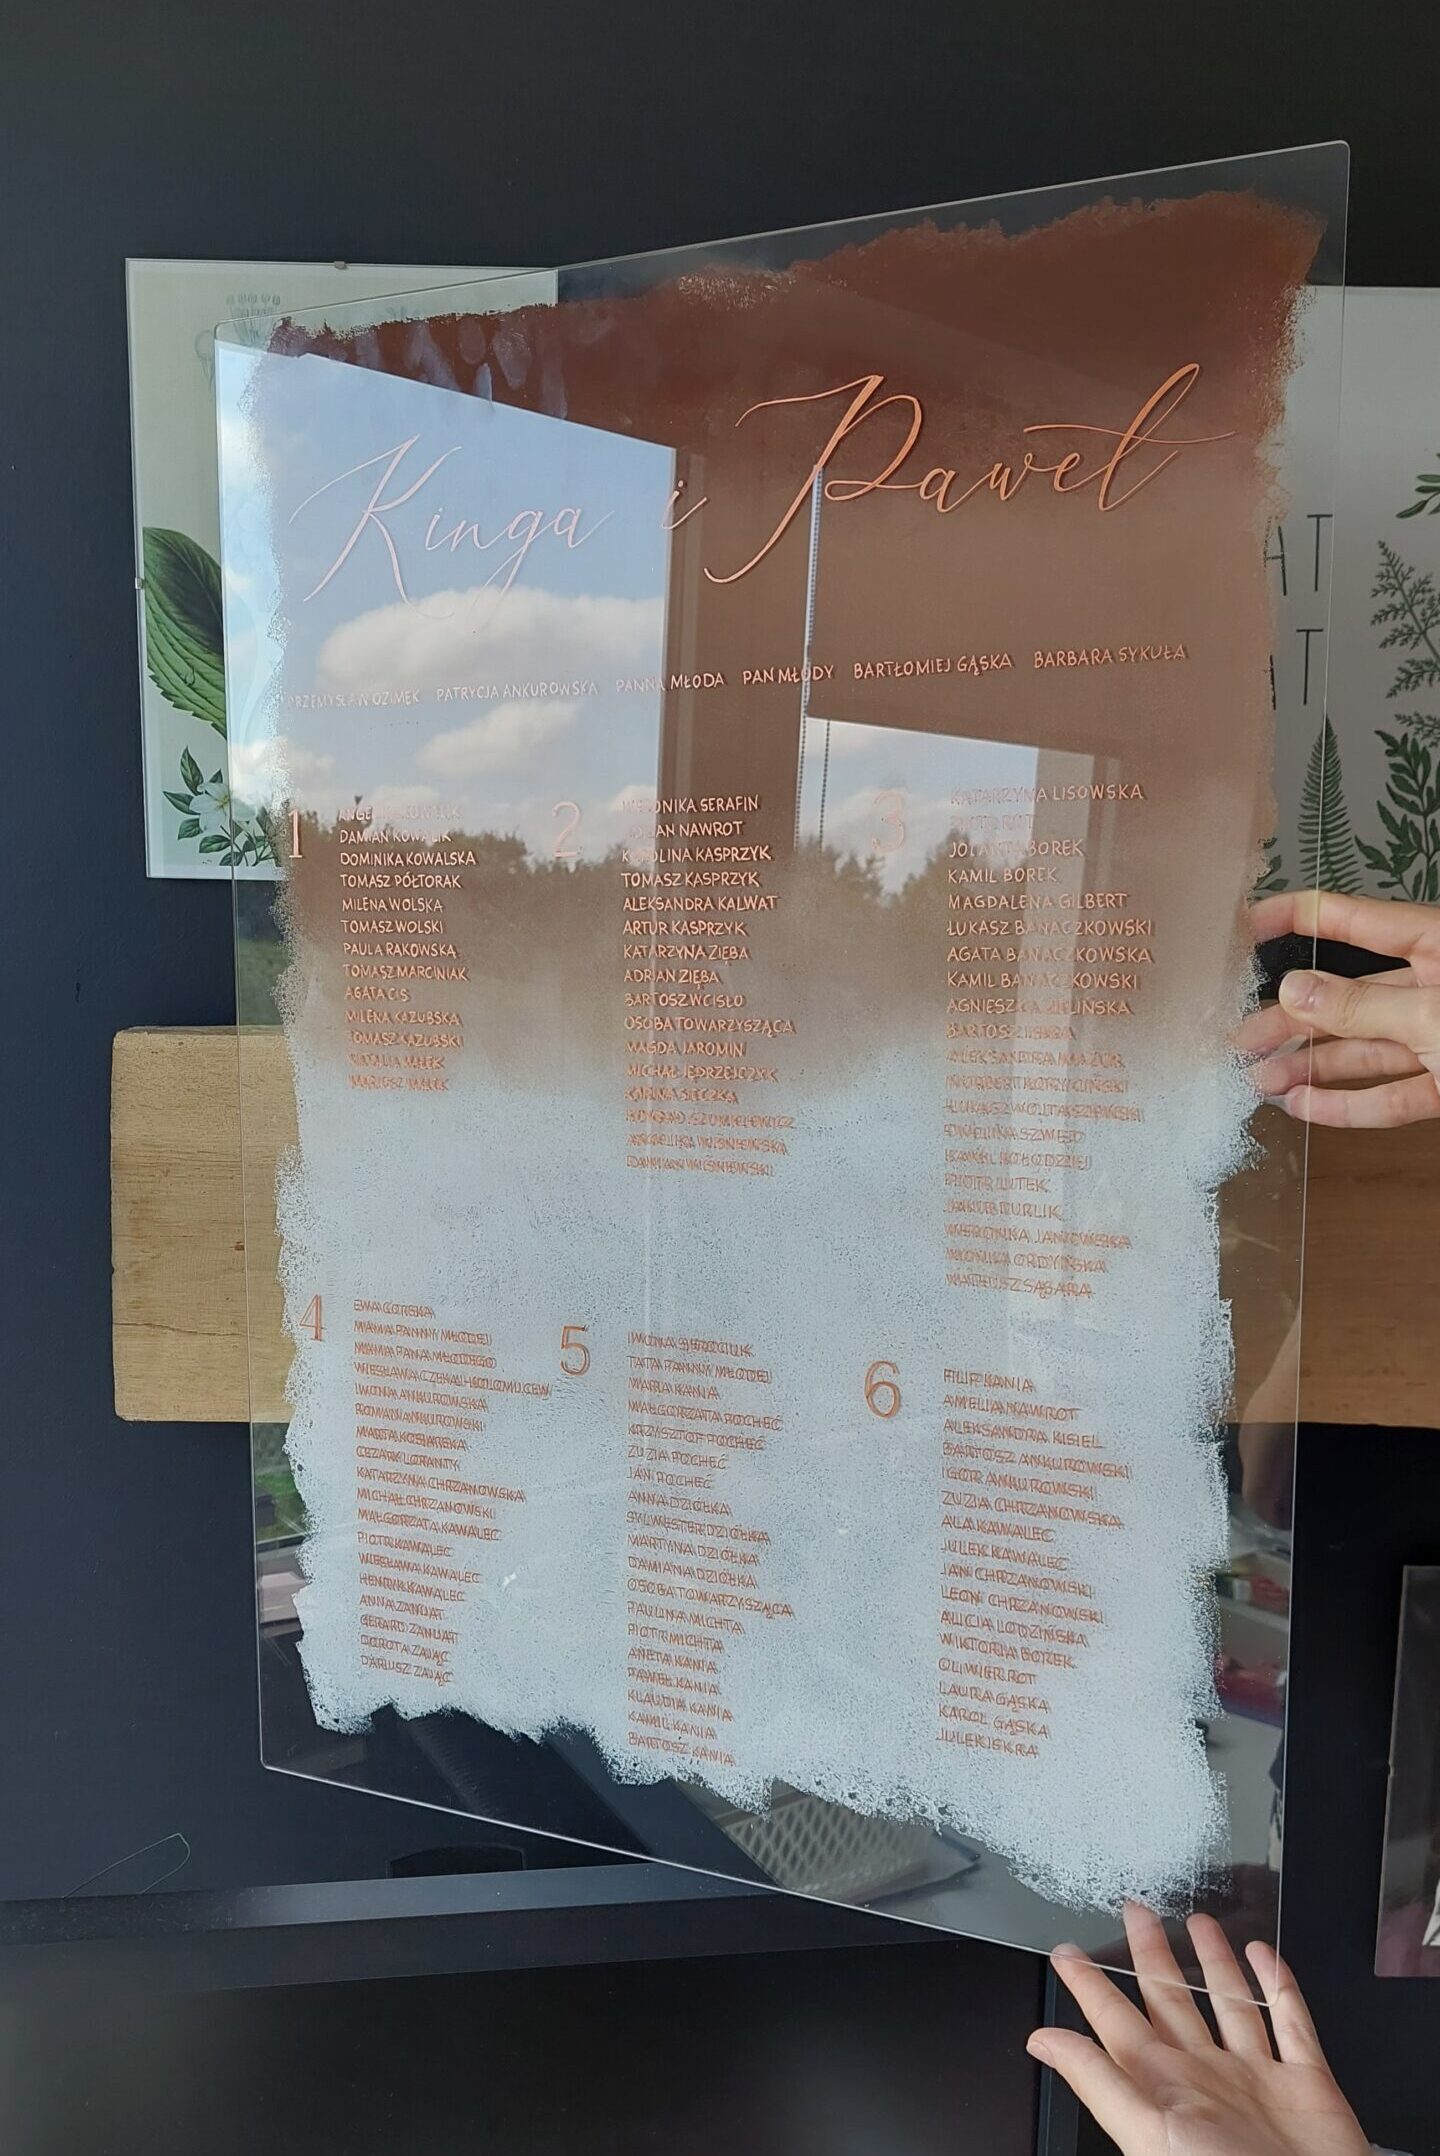 Kinga i Paweł
PRZEMYSŁAW OZIMEK PATRYCJA ANKUROWSKA PANNA MŁODA PAN MŁODY BARTŁOMIEJ GĄSKA BARBARA SYKUŁA
1
DAMIAN KOWALIK
DOMINIKA KOWALSKA
TOMASZ PÓŁTORAK
MILENA WOLSKA
TOMASZ WOLSKI
PAULA RAKOWSKA
TOMASZ MARCINIAK
AGATA CIS
MILENA KAZUBSKA
TOMASZ KAZUBSKI
NATALIA MAŁEK
MARIUSZ MAŁEK
2
WERONIKA SERAFIN
NAWROT
KAROLINA KASPRZYK
TOMASZ KASPRZYK
ALEKSANDRA KALWAT
ARTUR KASPRZYK
KATARZYNA ZIĘBA
ADRIAN ZIĘBA
BARTOSZ WCISŁO
OSOBA TOWARZYSZĄCA
MAGDA JAROMIN
MICHAŁ JĘDRZEJCZYK
KARINA SIECZKA
KONRAD SZUMILEWICZ
ANGELIKA WIŚNIEWSKA
DAMIAN WIŚNIEWSKI
3
KATARZYNA LISOWSKA
PIOTR ROT
JOLANTA BOREK
KAMIL BOREK
MAGDALENA GILBERT
ŁUKASZ BANACZKOWSKI
AGATA BANACZKOWSKA
KAMIL BANACZKOWSKI
AGNIESZKA ZIELIŃSKA
BARTOSZ
ALEKSANDRA MAZUR
NORBERT
ŁUKASZ WOJTASZEWSKI
EWELINA SZWED
KAMIL KOŁODZIEJ
PIOTR LITEK
JAKUB TURLIK
WERONIKA JANOWSKA
MONIKA ORDYŃSKA
MATEUSZ SAGARA
4
EWA GÓRSKA
MAMA PANNY MŁODEJ
MAMA PANA MŁODEGO
WIESŁAWA
IWONA ANKUROWSKA
ROMAN ANKUROWSKI
MARTA KOSIARSKA
CEZARY LORANTY
KATARZYNA CHRZANOWSKA
MICHAŁ CHRZANOWSKI
MAŁGORZATA KAWALEC
PIOTR KAWALEC
WIESŁAWA KAWALEC
HENRYK KAWALEC
ANNA ZANUAT
GERARD ZANUAT
DOROTA ZAJĄC
DARIUSZ ZAJĄC
5
IWONA SEROCIUK
TATA PANNY MŁODEJ
MARIA KANIA
MAŁGORZATA POCHEĆ
KRZYSZTOF POCHEĆ
ZUZIA POCHEĆ
JAN POCHEĆ
ANNA DZIÓŁKA
SYLWESTER DZIÓŁKA
MARTYNA DZIÓŁKA
DAMIANA DZIÓŁKA
OSOBA TOWARZYSZĄCA
PAULINA MICHTA
PIOTR MICHTA
ANETA KANIA
PAWEŁ KANIA
KLAUDIA KANIA
KAMIL KANIA
BARTOSZ KANIA
6
FILIP KANIA
AMELIA NAWROT
ALEKSANDRA KISIEL
BARTOSZ ANKUROWSKI
IGOR ANKUROWSKI
ZUZIA CHRZANOWSKA
ALA KAWALEC
JULEK KAWALEC
JAN CHRZANOWSKI
LEON CHRZANOWSKI
ALICJA LODZIŃSKA
WIKTORIA BOREK
OLIWIER ROT
LAURA GĄSKA
KAROL GĄSKA
JULEK ISKRA